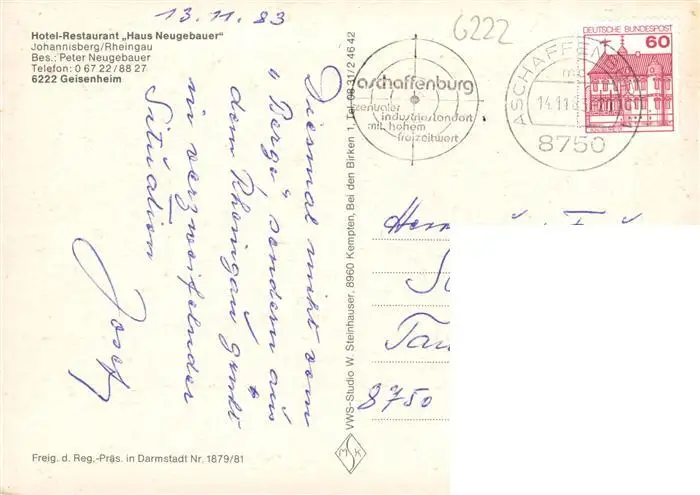 13.11.83
6222
Hotel-Restaurant „Haus Neugebauer“
Johannisberg/Rheingau
Bes.: Peter Neugebauer
Telefon: 0 67 22 / 88 27
6222 Geisenheim
Diesmal nicht vom
„Berge“, sondern aus
dem Rheingau grüßt
in verzweifelnder
Situation
Josef
VWS-Studio W. Steinhauser, 8960 Kempten, Bei den Birken 1, Tel. 08 31/2 46 42
aschaffenburg
zentraler
industriestandort
mit hohem
freizeitwert
ASCHAFFEN
14.11.
8750
DEUTSCHE BUNDESPOST
60
8750
MSK
Freig. d. Reg.-Präs. in Darmstadt Nr. 1879/81